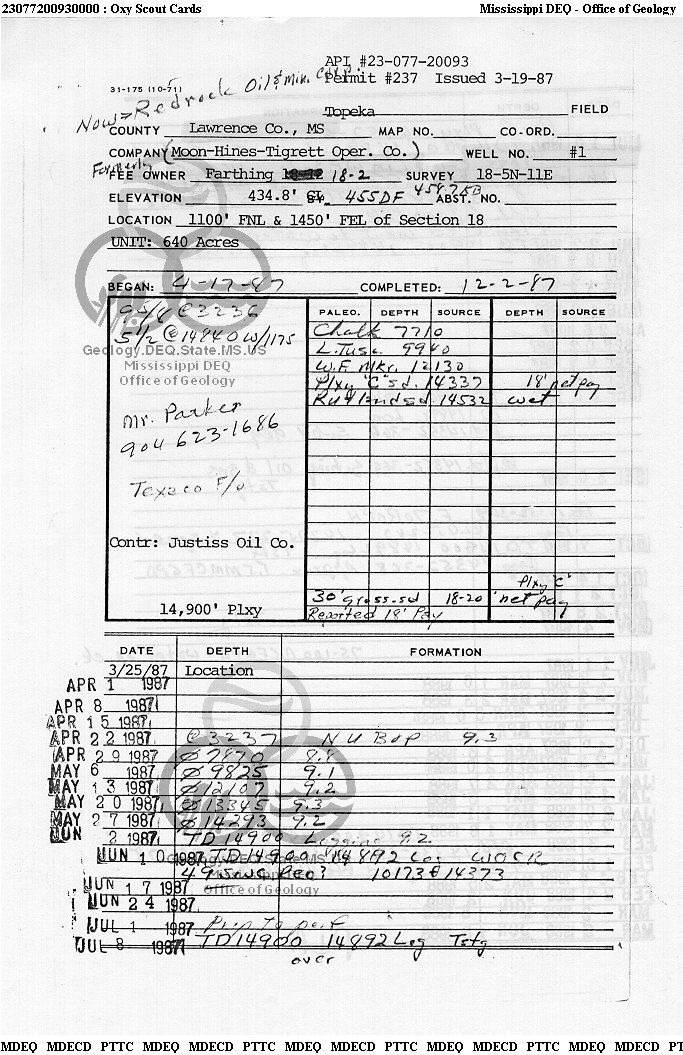 23077200930000 : Oxy Scout Cards Mississippi DEQ - Office of Geology
API #23-077-20093
31-175 (10-71) Permit #237 Issued 3-19-87
Now → Redrock Oil & Min. Corp.
Topeka FIELD
COUNTY Lawrence Co., MS MAP NO. CO-ORD.
COMPANY (Moon-Hines-Tigrett Oper. Co.) WELL NO. #1
Formerly
FEE OWNER Farthing 18-2 SURVEY 18-5N-11E
ELEVATION 434.8' GL 455DF ABST. NO.
LOCATION 1100' FNL & 1450' FEL of Section 18
UNIT: 640 Acres
BEGAN: 4-17-87 COMPLETED: 12-2-87
9 5/8 @ 3236
5 1/2 @ 14840 W/1175
Geology.DEQ.State.MS.US
Mississippi DEQ
Office of Geology
Mr. Parker
904 623-1686
Texaco F/o
Contr: Justiss Oil Co.
14,900' Plxy
PALEO. DEPTH SOURCE DEPTH SOURCE
Chalk 7710
L.Tusc. 9940
W.F. Mkr. 12130
Plxy "C" sd. 14337 18' net pay
Rutland sd 14532 wet
Plxy "C"
30' gross sd 18-20 'net pay
Reported 18' Pay
DATE DEPTH FORMATION
3/25/87 Location
APR 1 1987
APR 8 1987
APR 15 1987
APR 22 1987 @ 3237 N U BOP 9.3
APR 29 1987 Ø 7870 8.8
MAY 6 1987 Ø 9825 9.1
MAY 13 1987 Ø 12107 9.2
MAY 20 1987 Ø 13345 9.3
MAY 27 1987 Ø 14293 9.2
JUN 2 1987 TD 14900 Logging 9.2
JUN 10 1987 TD 14900 14892 Log WOCR
49 SWC Rec? 10173 @ 14373
Geology.DEQ.State.MS.US
Mississippi DEQ
Office of Geology
JUN 17 1987
JUN 24 1987
JUL 1 1987 Prep to perf
JUL 8 1987 TD 14900 14892 Log Tstg
over
MDEQ MDECD PTTC MDEQ MDECD PTTC MDEQ MDECD PTTC MDEQ MDECD PTTC MDEQ MDECD PT